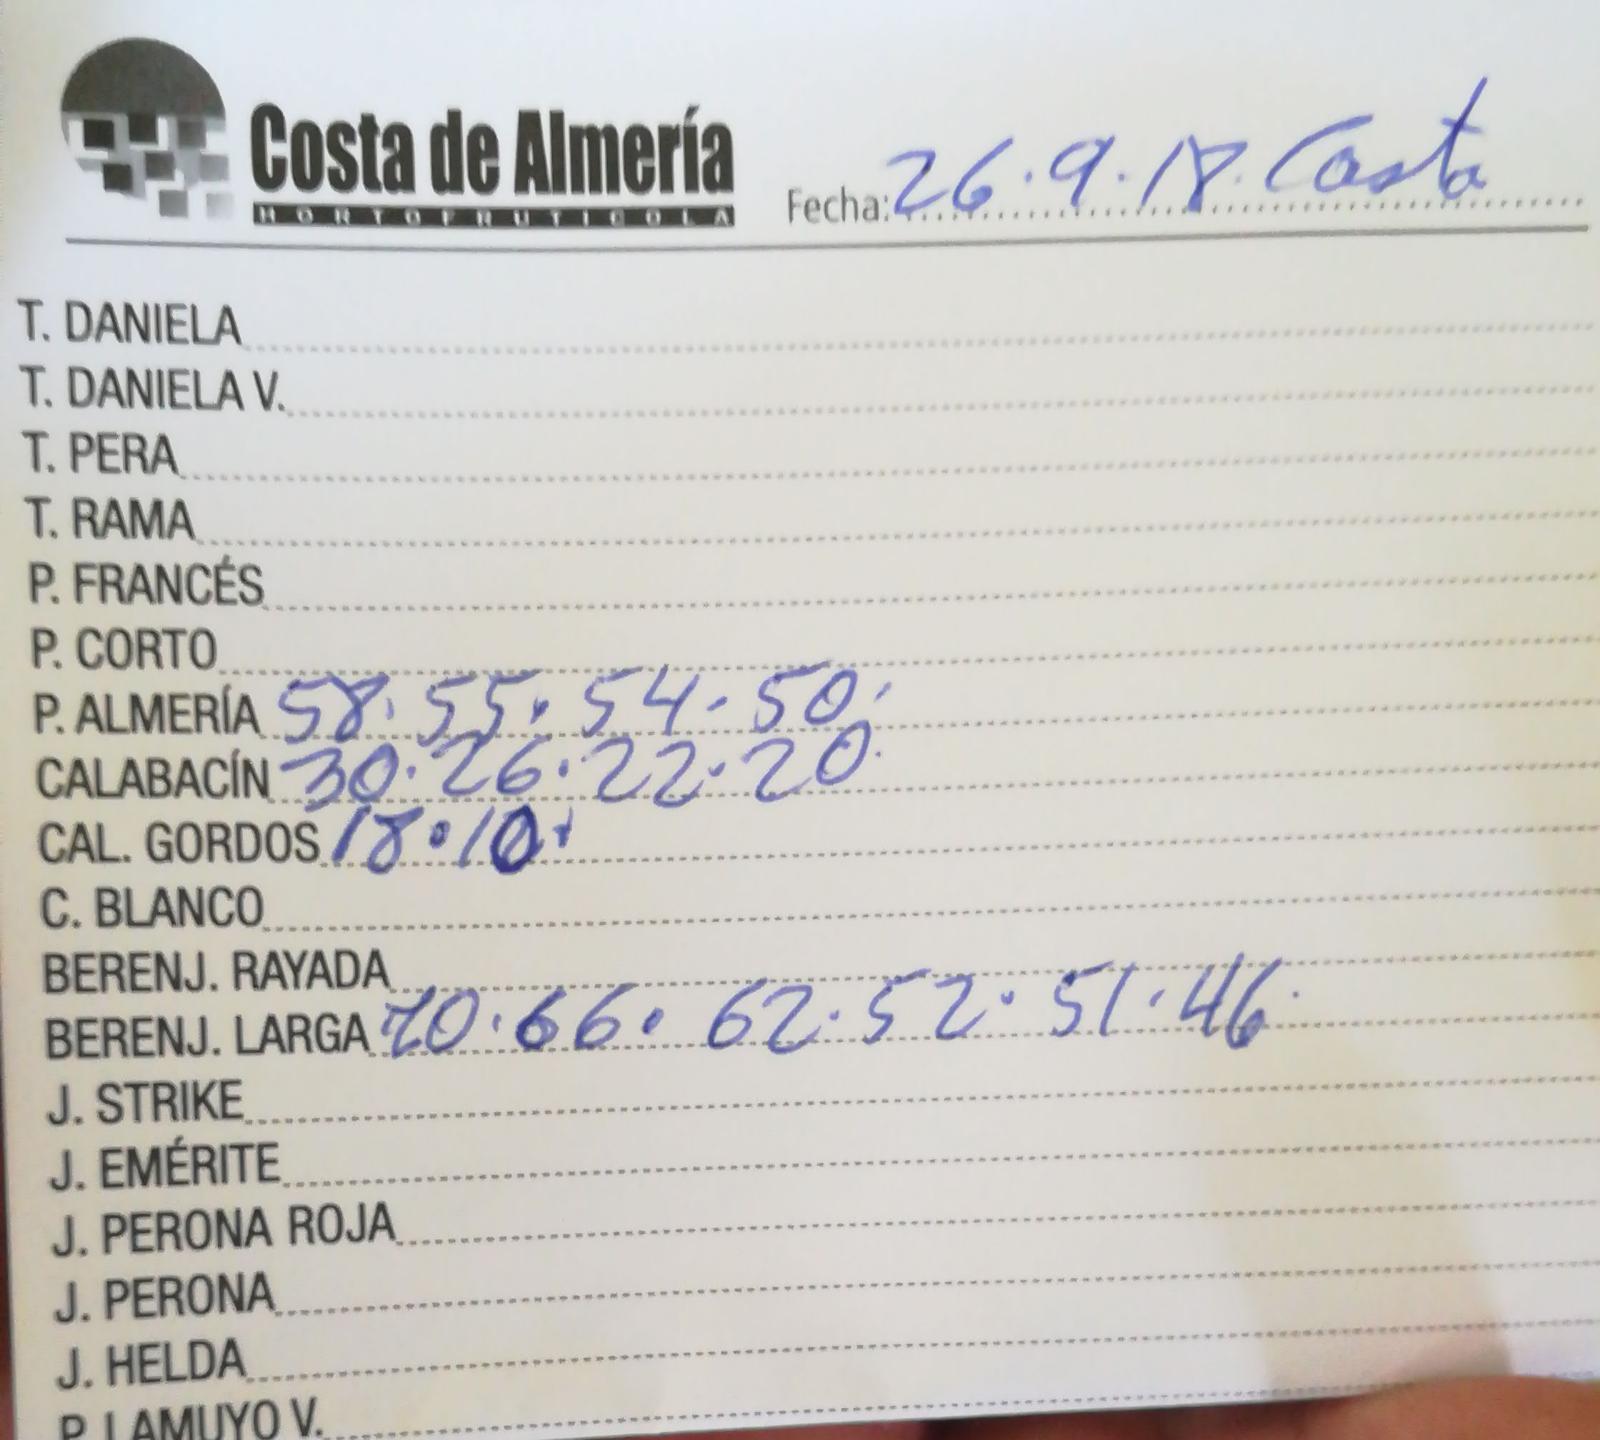 Costa de Almería
HORTOFRUTICOLA
Fecha: 26.9.18. Costa
T. DANIELA
T. DANIELA V.
T. PERA
T. RAMA
P. FRANCÉS
P. CORTO
P. ALMERÍA 58. 55. 54. 50.
CALABACÍN 30. 26. 22. 20.
CAL. GORDOS 18. 10.
C. BLANCO
BERENJ. RAYADA
BERENJ. LARGA 70. 66. 62. 52. 51. 46.
J. STRIKE
J. EMÉRITE
J. PERONA ROJA
J. PERONA
J. HELDA
P. LAMUYO V.